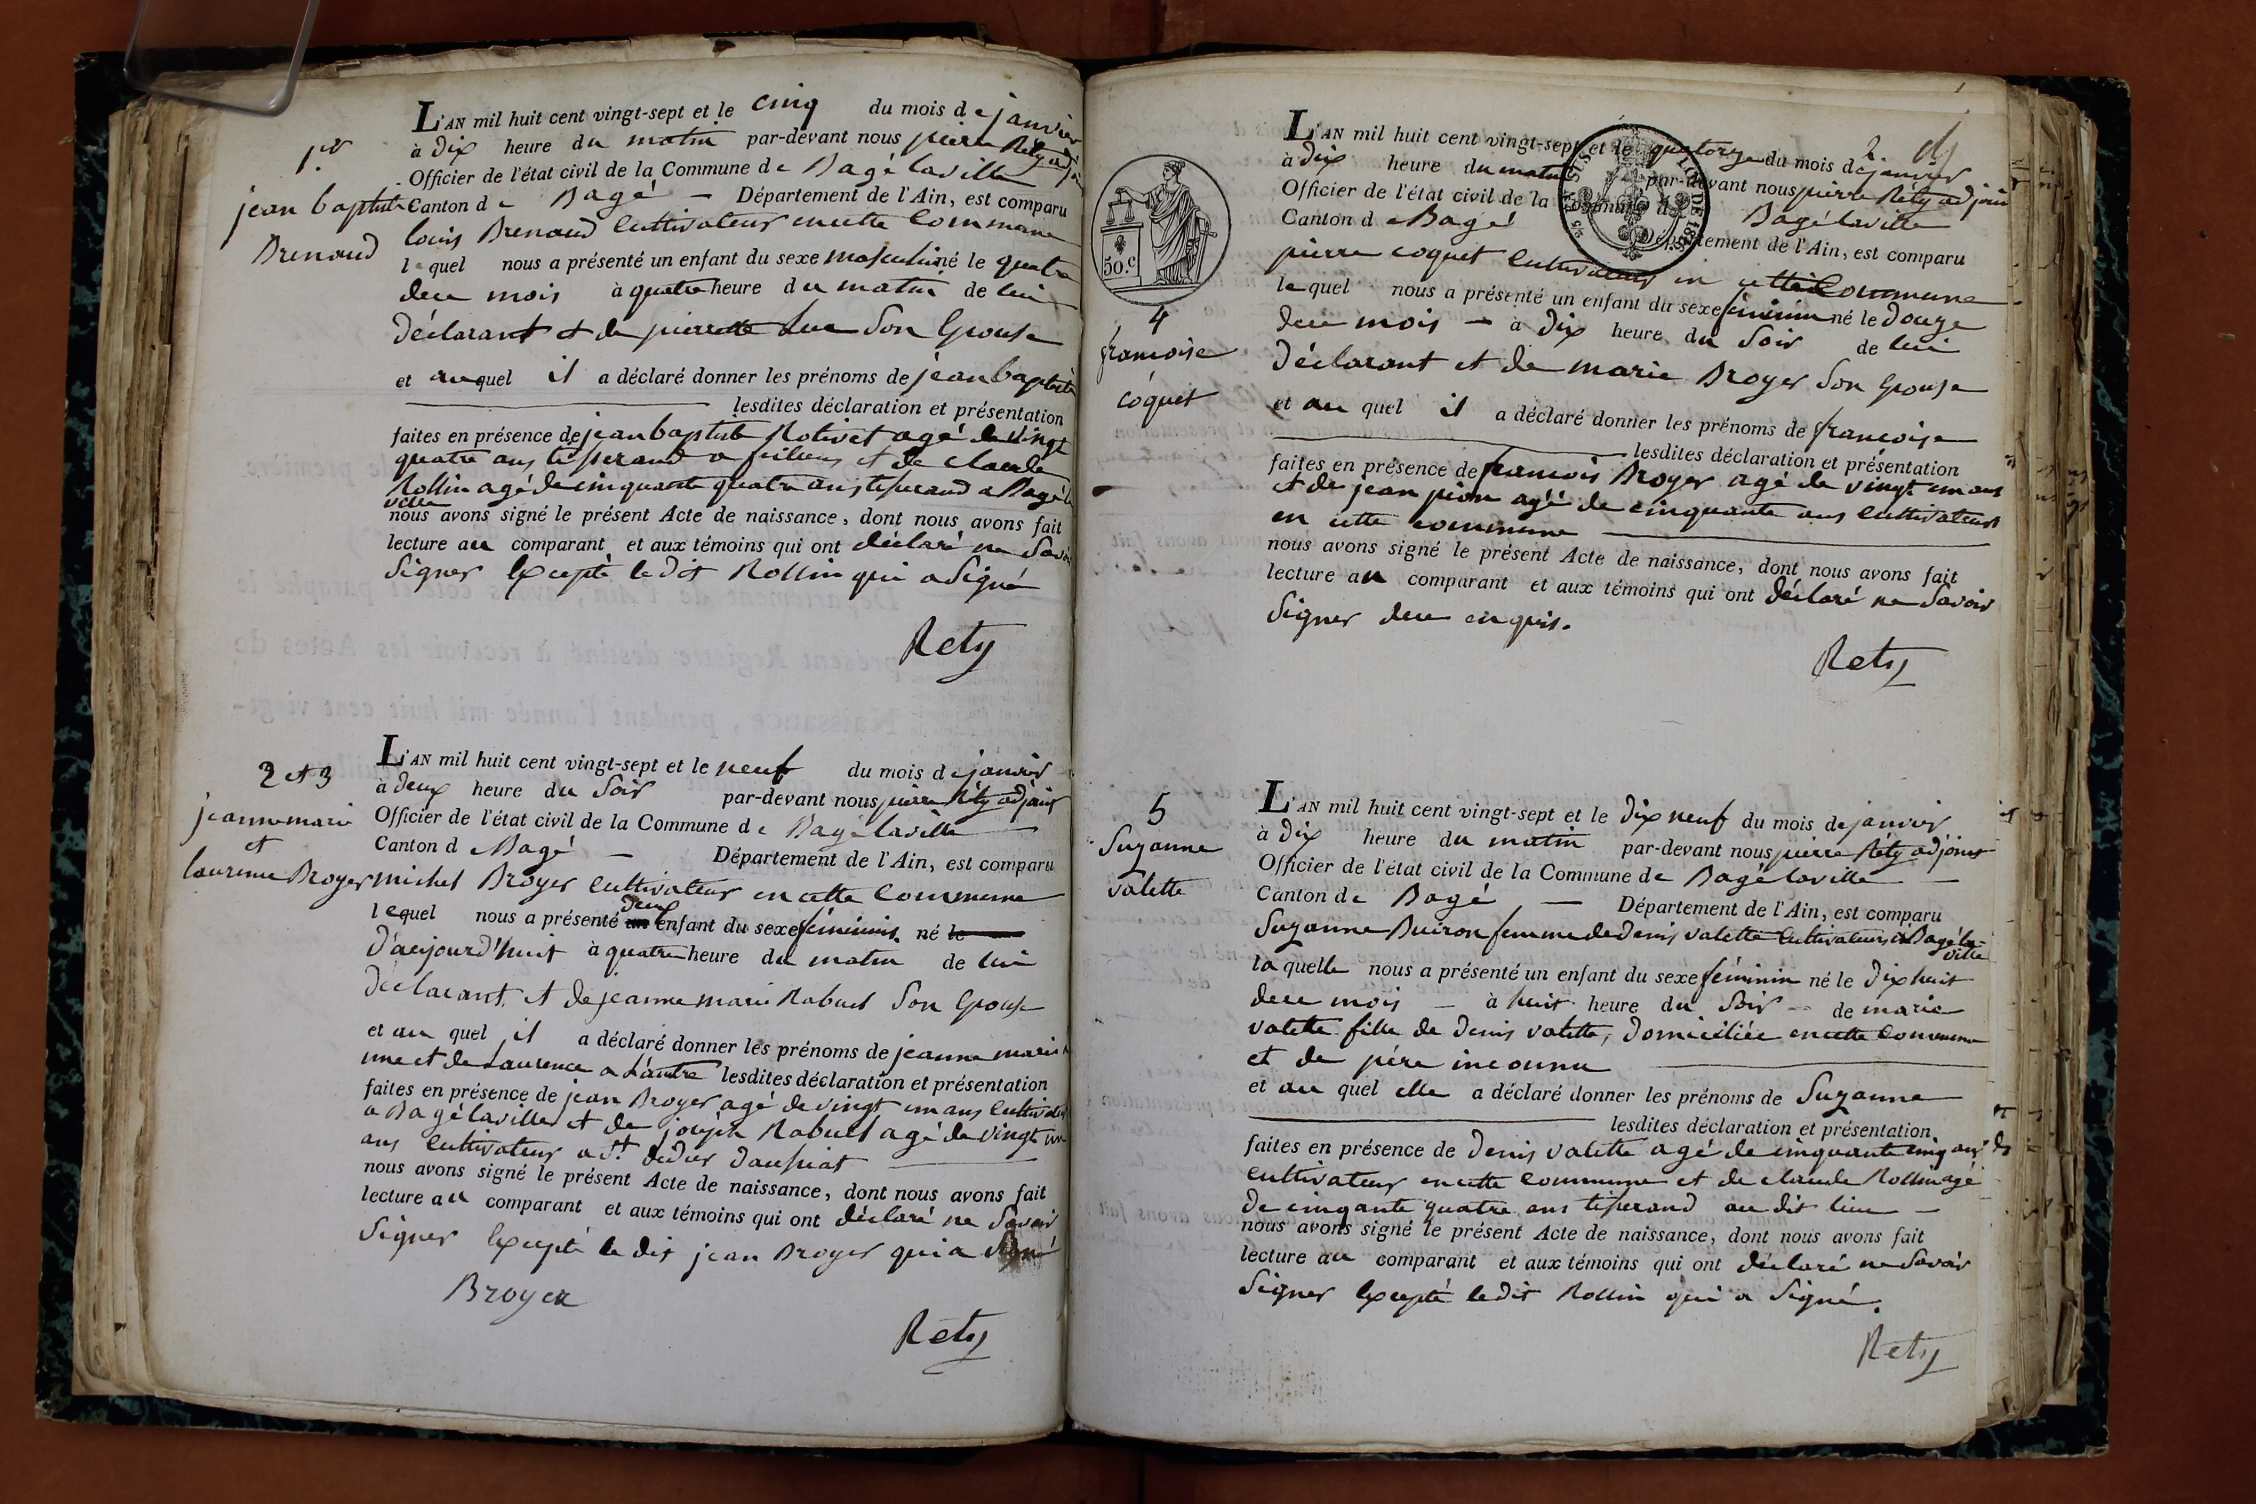 1er
jean baptiste
Brenaud
L'AN mil huit cent vingt-sept et le cinq du mois de janvier
à dix heure du matin par-devant nous pierre Réty adjoint
Officier de l'état civil de la Commune de Bagé laville
Canton de Bagé — Département de l'Ain, est comparu
louis Brenaud Cultivateur en cette Commune
lequel nous a présenté un enfant du sexe masculin né le quatre
du mois à quatre heure du matin de lui
déclarant et de pierrette son Epouse
et auquel il a déclaré donner les prénoms de jean baptiste
lesdites déclaration et présentation
faites en présence de jean baptiste Rotivet agé de vingt
quatre ans tisserand a et de claude
Rollin agé de cinquante quatre ans tisserand a Bagé la
ville
nous avons signé le présent Acte de naissance, dont nous avons fait
lecture au comparant et aux témoins qui ont déclaré ne Savoir
Signer Excepté le dit Rollin qui a Signé
Rety
2 et 3
jeanne marie
et
laurence Broyer
L'AN mil huit cent vingt-sept et le neuf du mois de janvier
à deux heure du Soir par-devant nous pierre Réty adjoint
Officier de l'état civil de la Commune de Bagé laville
Canton de Bagé — Département de l'Ain, est comparu
michel Broyer Cultivateur en cette Commune
deux
lequel nous a présenté un enfant du sexe féminin né le
d'aujourd'huit à quatre heure du matin de lui
déclarant, et de jeanne marie Rabuel Son Epouse
et au quel il a déclaré donner les prénoms de jeanne marie a
une et de Laurence a L'autre lesdites déclaration et présentation
faites en présence de jean Broyer agé de vingt un ans Cultivateur
a Bagé laville et de joseph Rabuel agé de vingt un
ans Cultivateur a St didier daussiat
nous avons signé le présent Acte de naissance, dont nous avons fait
lecture au comparant et aux témoins qui ont déclaré ne Savoir
Signer Excepté le dit jean Broyer qui a Signé
Broyer
Rety
2.
50.c
4
francoise
coquet
L'AN mil huit cent vingt-sept et le quatorze du mois de janvier
à dix heure du matin par-devant nous pierre Réty adjoint
Officier de l'état civil de la Commune de Bagé laville
Canton de Bagé Département de l'Ain, est comparu
pierre coquet Cultivateur en cette Commune
lequel nous a présenté un enfant du sexe féminin né le douze
du mois — à dix heure du Soir de lui
déclarant et de marie Broyer Son Epouse
et au quel il a déclaré donner les prénoms de francoise
lesdites déclaration et présentation
faites en présence de francois Broyer agé de vingt un ans
et de jean pion agé de cinquante ans Cultivateurs
en cette commune
nous avons signé le présent Acte de naissance, dont nous avons fait
lecture au comparant et aux témoins qui ont déclaré ne Savoir
Signer de ce enquis.
Rety
5
Suzanne
valette
L'AN mil huit cent vingt-sept et le dix neuf du mois de janvier
à dix heure du matin par-devant nous pierre Réty adjoint
Officier de l'état civil de la Commune de Bagé laville —
Canton de Bagé — Département de l'Ain, est comparu
Suzanne Buiron femme de denis valette Cultivateurs à Bagé la-
ville
laquelle nous a présenté un enfant du sexe féminin né le dix huit
du mois — à huit heure du Soir — de marie
valette fille de denis valette, domiciliée en cette Commune
et de père inconnu
et au quel elle a déclaré donner les prénoms de Suzanne
lesdites déclaration et présentation
faites en présence de denis valette agé de cinquante cinq ans
Cultivateur en cette Commune et de claude Rollin agé
de cinqante quatre ans tisserand au dit lieu —
nous avons signé le présent Acte de naissance, dont nous avons fait
lecture au comparant et aux témoins qui ont déclaré ne Savoir
Signer Excepté ledit Rollin qui a Signé.
Rety